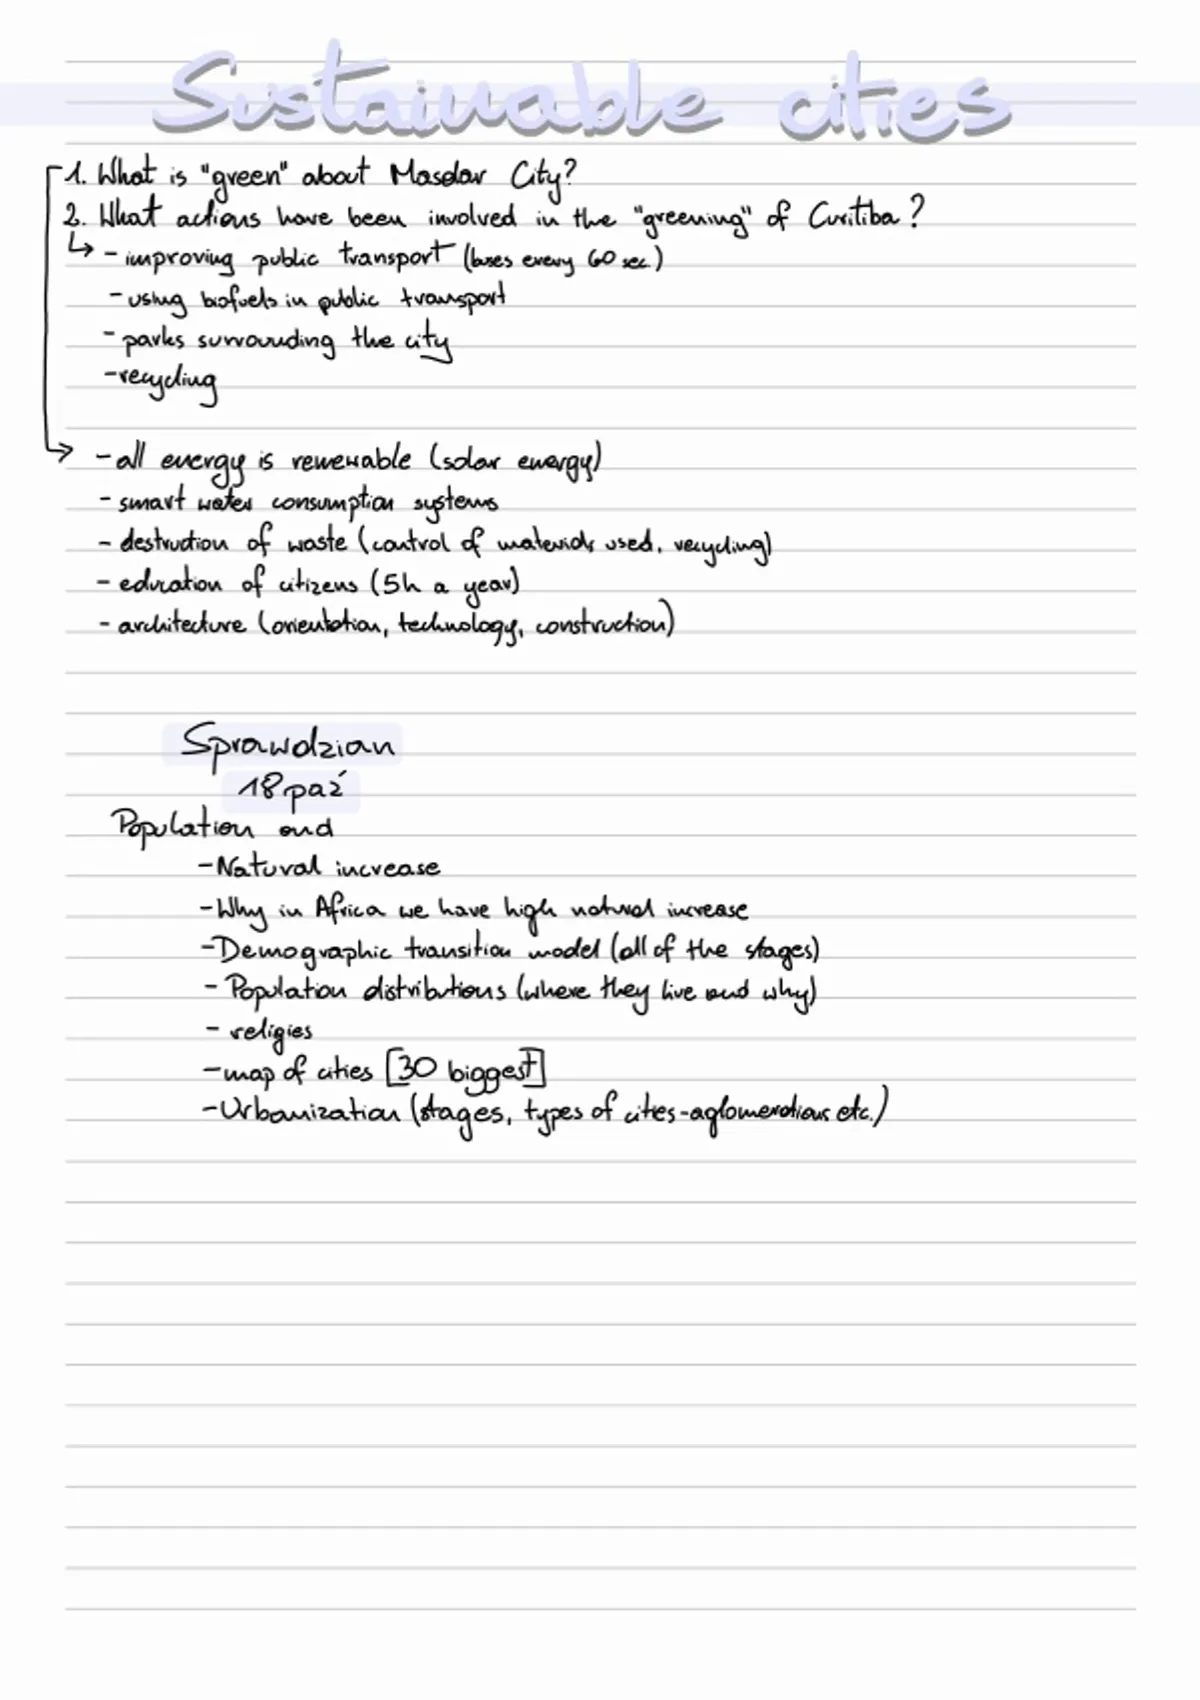 Sustainable cities
1. What is "green" about Masdar City?
2. What actions have been involved in the "greening" of Curitiba?
↳ - improving public transport (buses every 60 sec.)
- using biofuels in public transport
- parks surrounding the city
- recycling
→ - all energy is renewable (solar energy)
- smart water consumption systems
- destruction of waste (control of materials used, recycling)
- education of citizens (5h a year)
- architecture (orientation, technology, construction)
Sprawdzian
18 paź
Population and
- Natural increase
- Why in Africa we have high natural increase
- Demographic transition model (all of the stages)
- Population distributions (where they live and why)
- religies
- map of cities [30 biggest]
- Urbanization (stages, types of cities-aglomerations etc.)